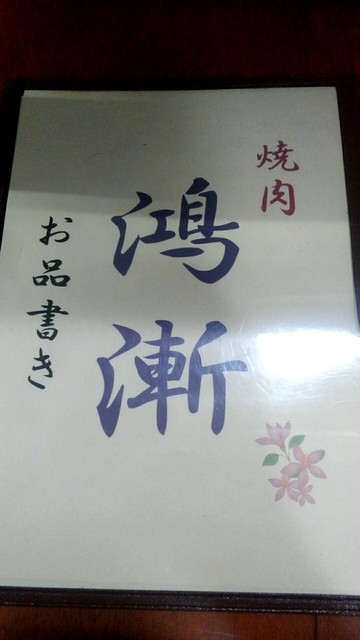 焼肉
鴻漸
お品書き